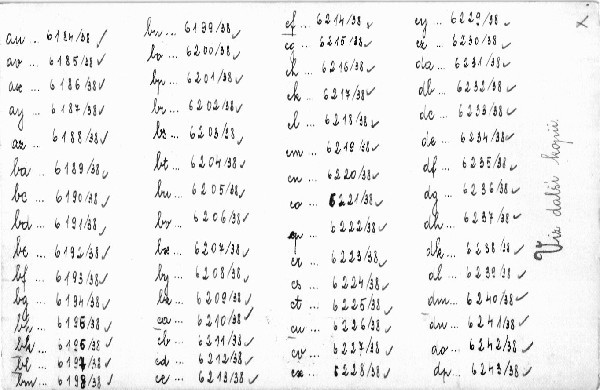 au ... 6184/38
av ... 6185/38
ax ... 6186/38
ay ... 6187/38
az ... 6188/38
ba ... 6189/38
bc ... 6190/38
bd ... 6191/38
be ... 6192/38
bf ... 6193/38
bg ... 6194/38
bh ... 6195/38
bk ... 6196/38
bl ... 6197/38
bm ... 6198/38
bn ... 6199/38
bo ... 6200/38
bp ... 6201/38
br ... 6202/38
bs ... 6203/38
bt ... 6204/38
bu ... 6205/38
bv ... 6206/38
bx ... 6207/38
by ... 6208/38
bz ... 6209/38
ca ... 6210/38
cb ... 6211/38
cd ... 6212/38
ce ... 6213/38
cf ... 6214/38
cg ... 6215/38
ch ... 6216/38
ck ... 6217/38
cl ... 6218/38
cm ... 6219/38
cn ... 6220/38
co ... 6221/38
cp ... 6222/38
cr ... 6223/38
cs ... 6224/38
ct ... 6225/38
cu ... 6226/38
cv ... 6227/38
cx ... 6228/38
cy ... 6229/38
cz ... 6230/38
da ... 6231/38
db ... 6232/38
dc ... 6233/38
de ... 6234/38
df ... 6235/38
dg ... 6236/38
dh ... 6237/38
dk ... 6238/38
dl ... 6239/38
dm ... 6240/38
dn ... 6241/38
do ... 6242/38
dp ... 6243/38
Viz další kopii.